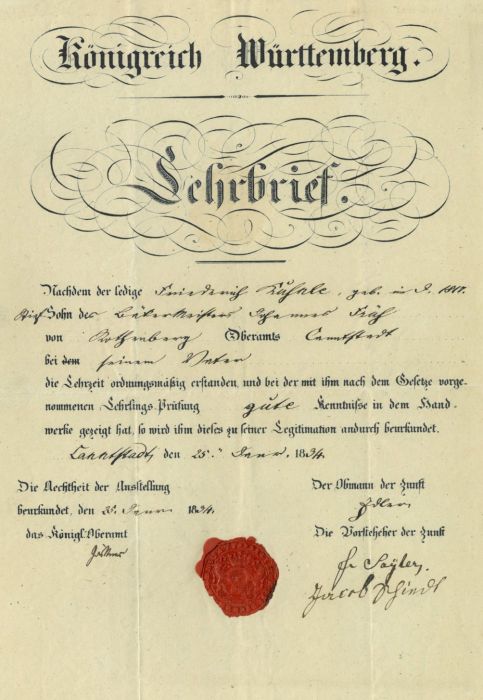 Königreich Württemberg.
Lehrbrief.
Nachdem der ledige Friederich Kühnle, geb. in d. 1817.
Stief Sohn des Bäkermeisters Johannes Früh
von Rothenberg Oberamts Canntstadt
bei dem seinem Vater
die Lehrzeit ordnungsmäßig erstanden, und bei der mit ihm nach dem Gesetze vorge-
nommenen Lehrlings-Prüfung gute Kenntnisse in dem Hand-
werke gezeigt hat, so wird ihm dieses zu seiner Legitimation andurch beurkundet.
Canntstadt, den 25. 1834.
Die Aechtheit der Ausstellung
beurkundet, den 1834.
das Königl. Oberamt
Der Obmann der Zunft
Die Vorsteher der Zunft
Fr Sayler,
Jacob Schiedt